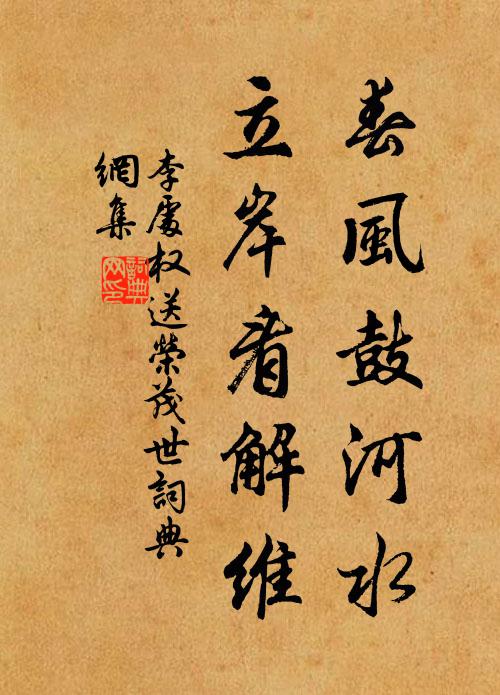 春風鼓河水
立岸看解維
李處权送榮茂世詞典
網集
詞典
网印